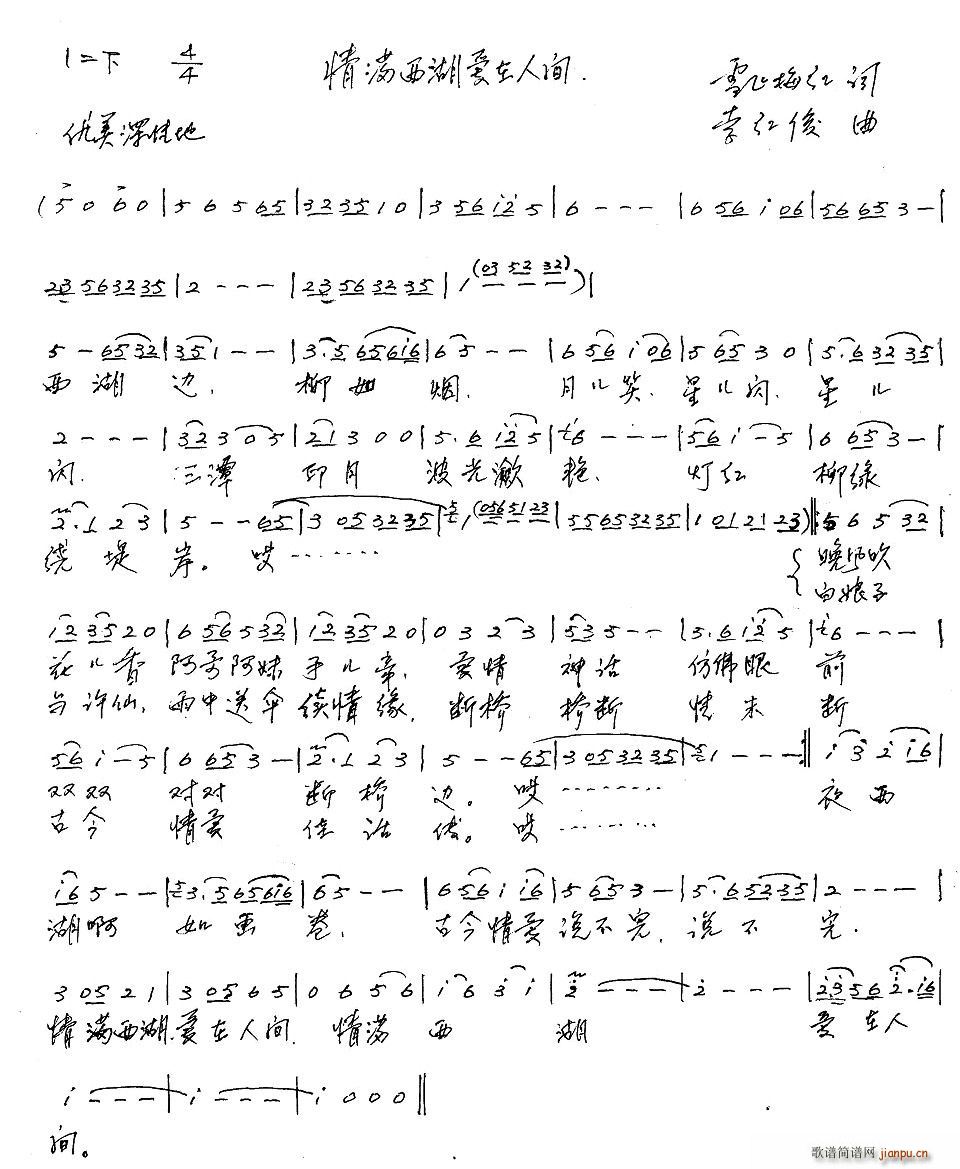 1=F 4/4 情满西湖爱在人间.
雪山梅红 词
优美深情地 李红俊 曲
(5 0 6 0|5 6 5 65|3235 1 0|3 56 i2 5|6 - - -|6 56 i 06|56 65 3 -|
23 56 32 35|2 - - -|23 56 32 35|1 - - -(03 52 32))|
5 - 6532|351 - -|3.5 656i6|65 - -|6 56 i 06|5 65 3 0|5.6 32 35|
西湖 边, 柳如 烟. 月儿笑.星儿闪.星儿
2 - - -|32 3 0 5|21 3 0 0|5.6 i2 5|i6 - - -|56 i - 5|6 65 3 -|
闪. 三潭 印月 波光潋 艳. 灯红 柳绿
2.1 2 3|5 - - 65|3 05 32 35|1 (056 51 23|55 65 32 35|1 01 21 23)‖:5 6 5 32|
绕堤 岸。哎……… 晚风吹
白娘子
12 35 2 0|6 56 5 32|12 35 2 0|0 3 2 3|53 5 - -|5.6 i2 5|i6 - - -|
花儿香 阿哥阿妹 手儿牵. 爱情 神话 仿佛眼 前
与许仙, 雨中送伞 续情缘. 断桥 桥断 情未 断
56 i - 5|6 65 3 -|2.1 2 3|5 - - 65|3 05 32 35|1 - - -:‖i 3 2 i6|
双双 对对 断桥 边。哎……… 夜西
古今 情爱 佳话 传。哎………
i6 5 - -|3.5 656i6|65 - -|6 56 i i6|5 65 3 -|5.6 52 35|2 - - -|
湖啊 如画 卷, 古今情爱 说不完, 说不 完.
3 05 2 1|3 05 6 5|0 6 5 6|i 6 3 i|2 - - -|2 - - -|23 56 2.i6|
情满西湖.爱在人间. 情满 西 湖 爱在人
i - - -|i - - -|i 0 0 0‖
间。
歌谱简谱网 jianpu.cn